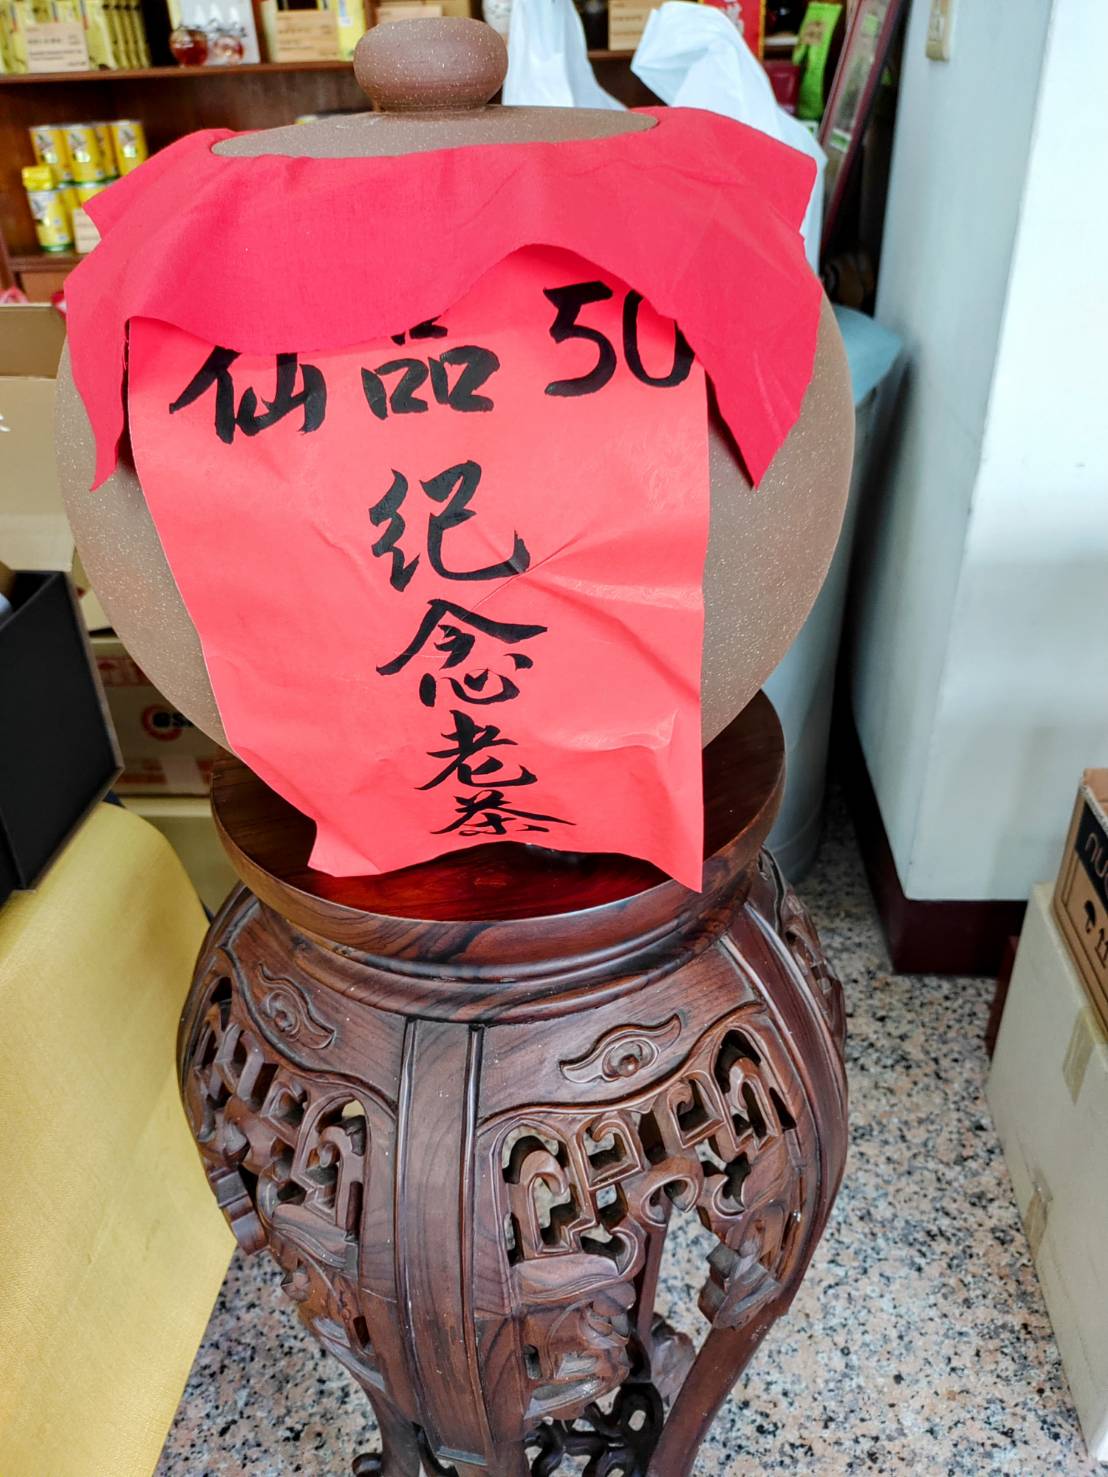 仙品50
纪
念
老
茶